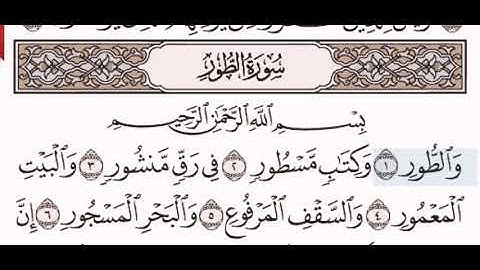 سُورَةُ ٱلطُّورِ
بِسْمِ ٱللَّهِ ٱلرَّحْمَٰنِ ٱلرَّحِيمِ
وَٱلطُّورِ ١ وَكِتَٰبٍ مَّسْطُورٍ ٢ فِي رَقٍّ مَّنشُورٍ ٣ وَٱلْبَيْتِ
ٱلْمَعْمُورِ ٤ وَٱلسَّقْفِ ٱلْمَرْفُوعِ ٥ وَٱلْبَحْرِ ٱلْمَسْجُورِ ٦ إِنَّ